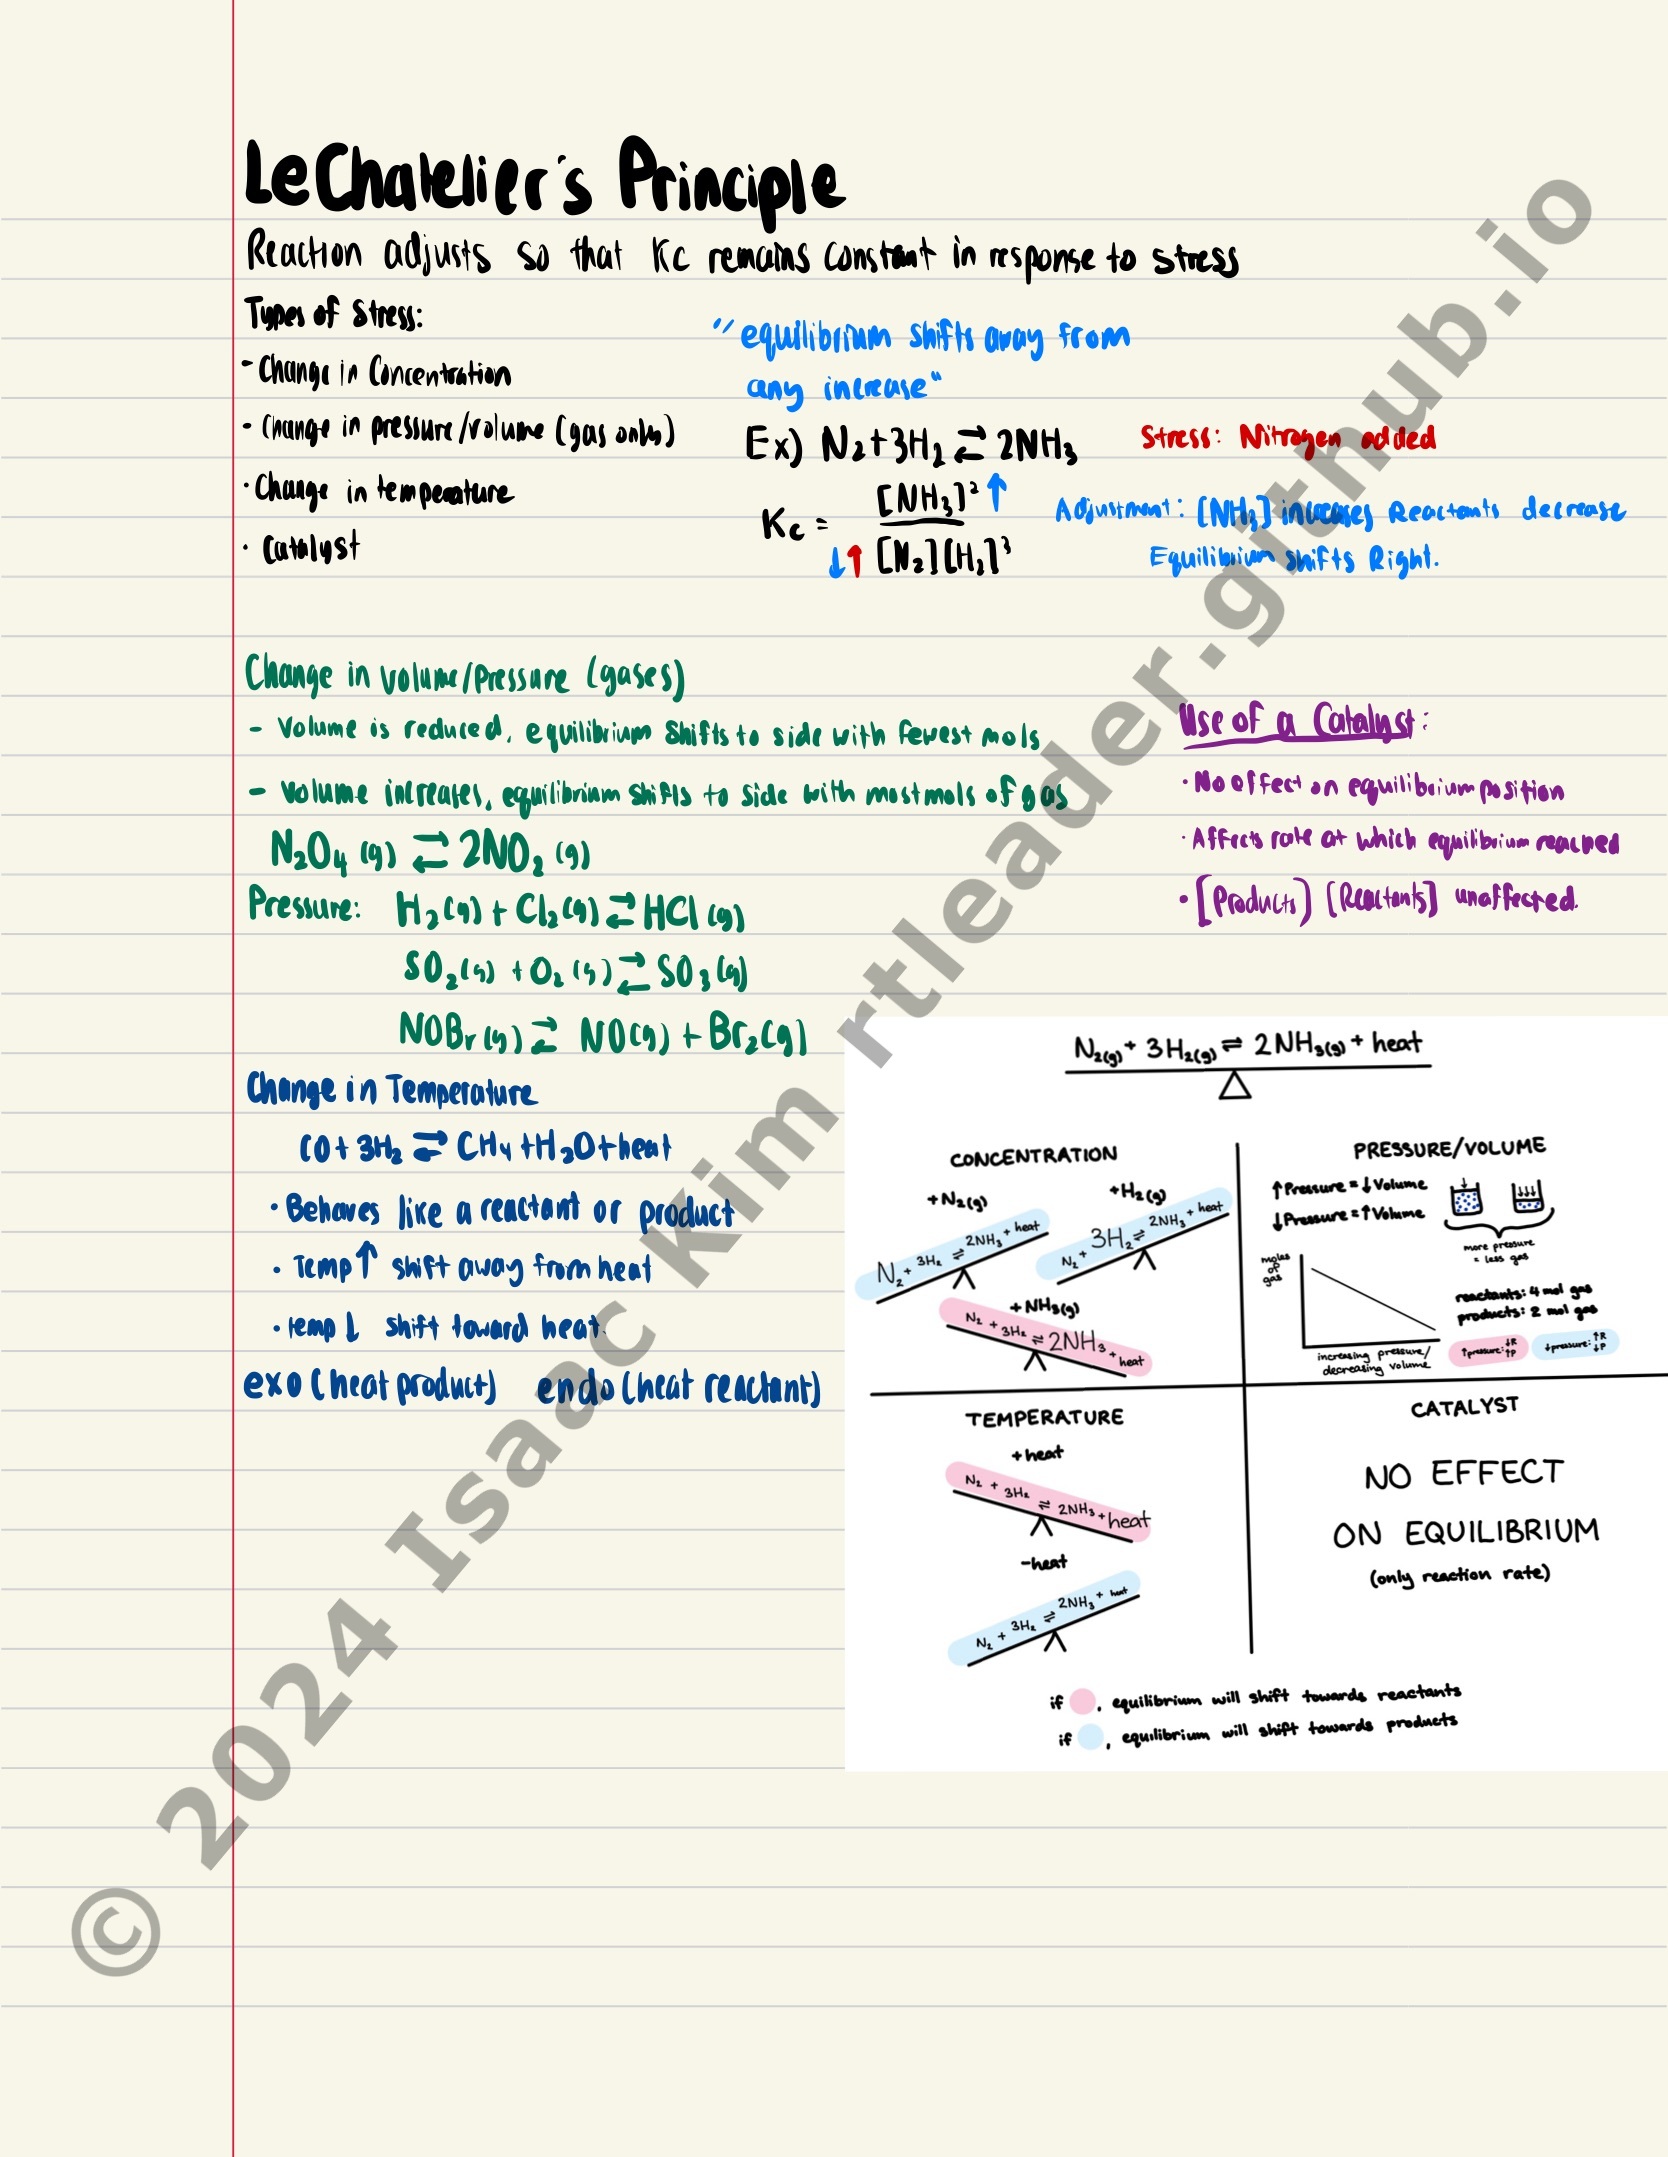 LeChatelier's Principle
Reaction adjusts so that Kc remains constant in response to stress
Types of Stress:
- Change in Concentration
- Change in pressure/volume (gas only)
· Change in temperature
· Catalyst
"equilibrium shifts away from
any increase"
Ex) N₂+3H₂ ⇄ 2NH₃
Stress: Nitrogen added
Kc = [NH₃]² ↑
↓↑ [N₂][H₂]³
Adjustment: [NH₃] increases Reactants decrease
Equilibrium shifts Right.
Change in volume/Pressure (gases)
- Volume is reduced, equilibrium shifts to side with fewest mols
- Volume increases, equilibrium shifts to side with most mols of gas
N₂O₄ (g) ⇄ 2NO₂ (g)
Pressure: H₂(g) + Cl₂(g) ⇄ HCl (g)
SO₂(g) + O₂(g) ⇄ SO₃(g)
NOBr(g) ⇄ NO(g) + Br₂(g)
Use of a Catalyst:
· No effect on equilibrium position
· Affects rate at which equilibrium reached
· [Products) [Reactants] unaffected.
Change in Temperature
CO + 3H₂ ⇄ CH₄ + H₂O + heat
· Behaves like a reactant or product
· Temp ↑ shift away from heat
· temp ↓ shift toward heat.
exo (heat product) endo (heat reactant)
N₂(g) + 3H₂(g) ⇌ 2NH₃(g) + heat
CONCENTRATION
+N₂(g)
N₂ + 3H₂ ⇌ 2NH₃ + heat
+H₂(g)
N₂ + 3H₂ ⇌ 2NH₃ + heat
+NH₃(g)
N₂ + 3H₂ ⇌ 2NH₃ + heat
PRESSURE/VOLUME
↑Pressure = ↓Volume
↓Pressure = ↑Volume
more pressure
= less gas
moles
of
gas
increasing pressure/
decreasing volume
reactants: 4 mol gas
products: 2 mol gas
↑pressure: ↓R ↑P
↓pressure: ↑R ↓P
TEMPERATURE
+heat
N₂ + 3H₂ ⇌ 2NH₃ + heat
-heat
N₂ + 3H₂ ⇌ 2NH₃ + heat
CATALYST
NO EFFECT
ON EQUILIBRIUM
(only reaction rate)
if , equilibrium will shift towards reactants
if , equilibrium will shift towards products
© 2024 Isaac Kim rtleader.github.io